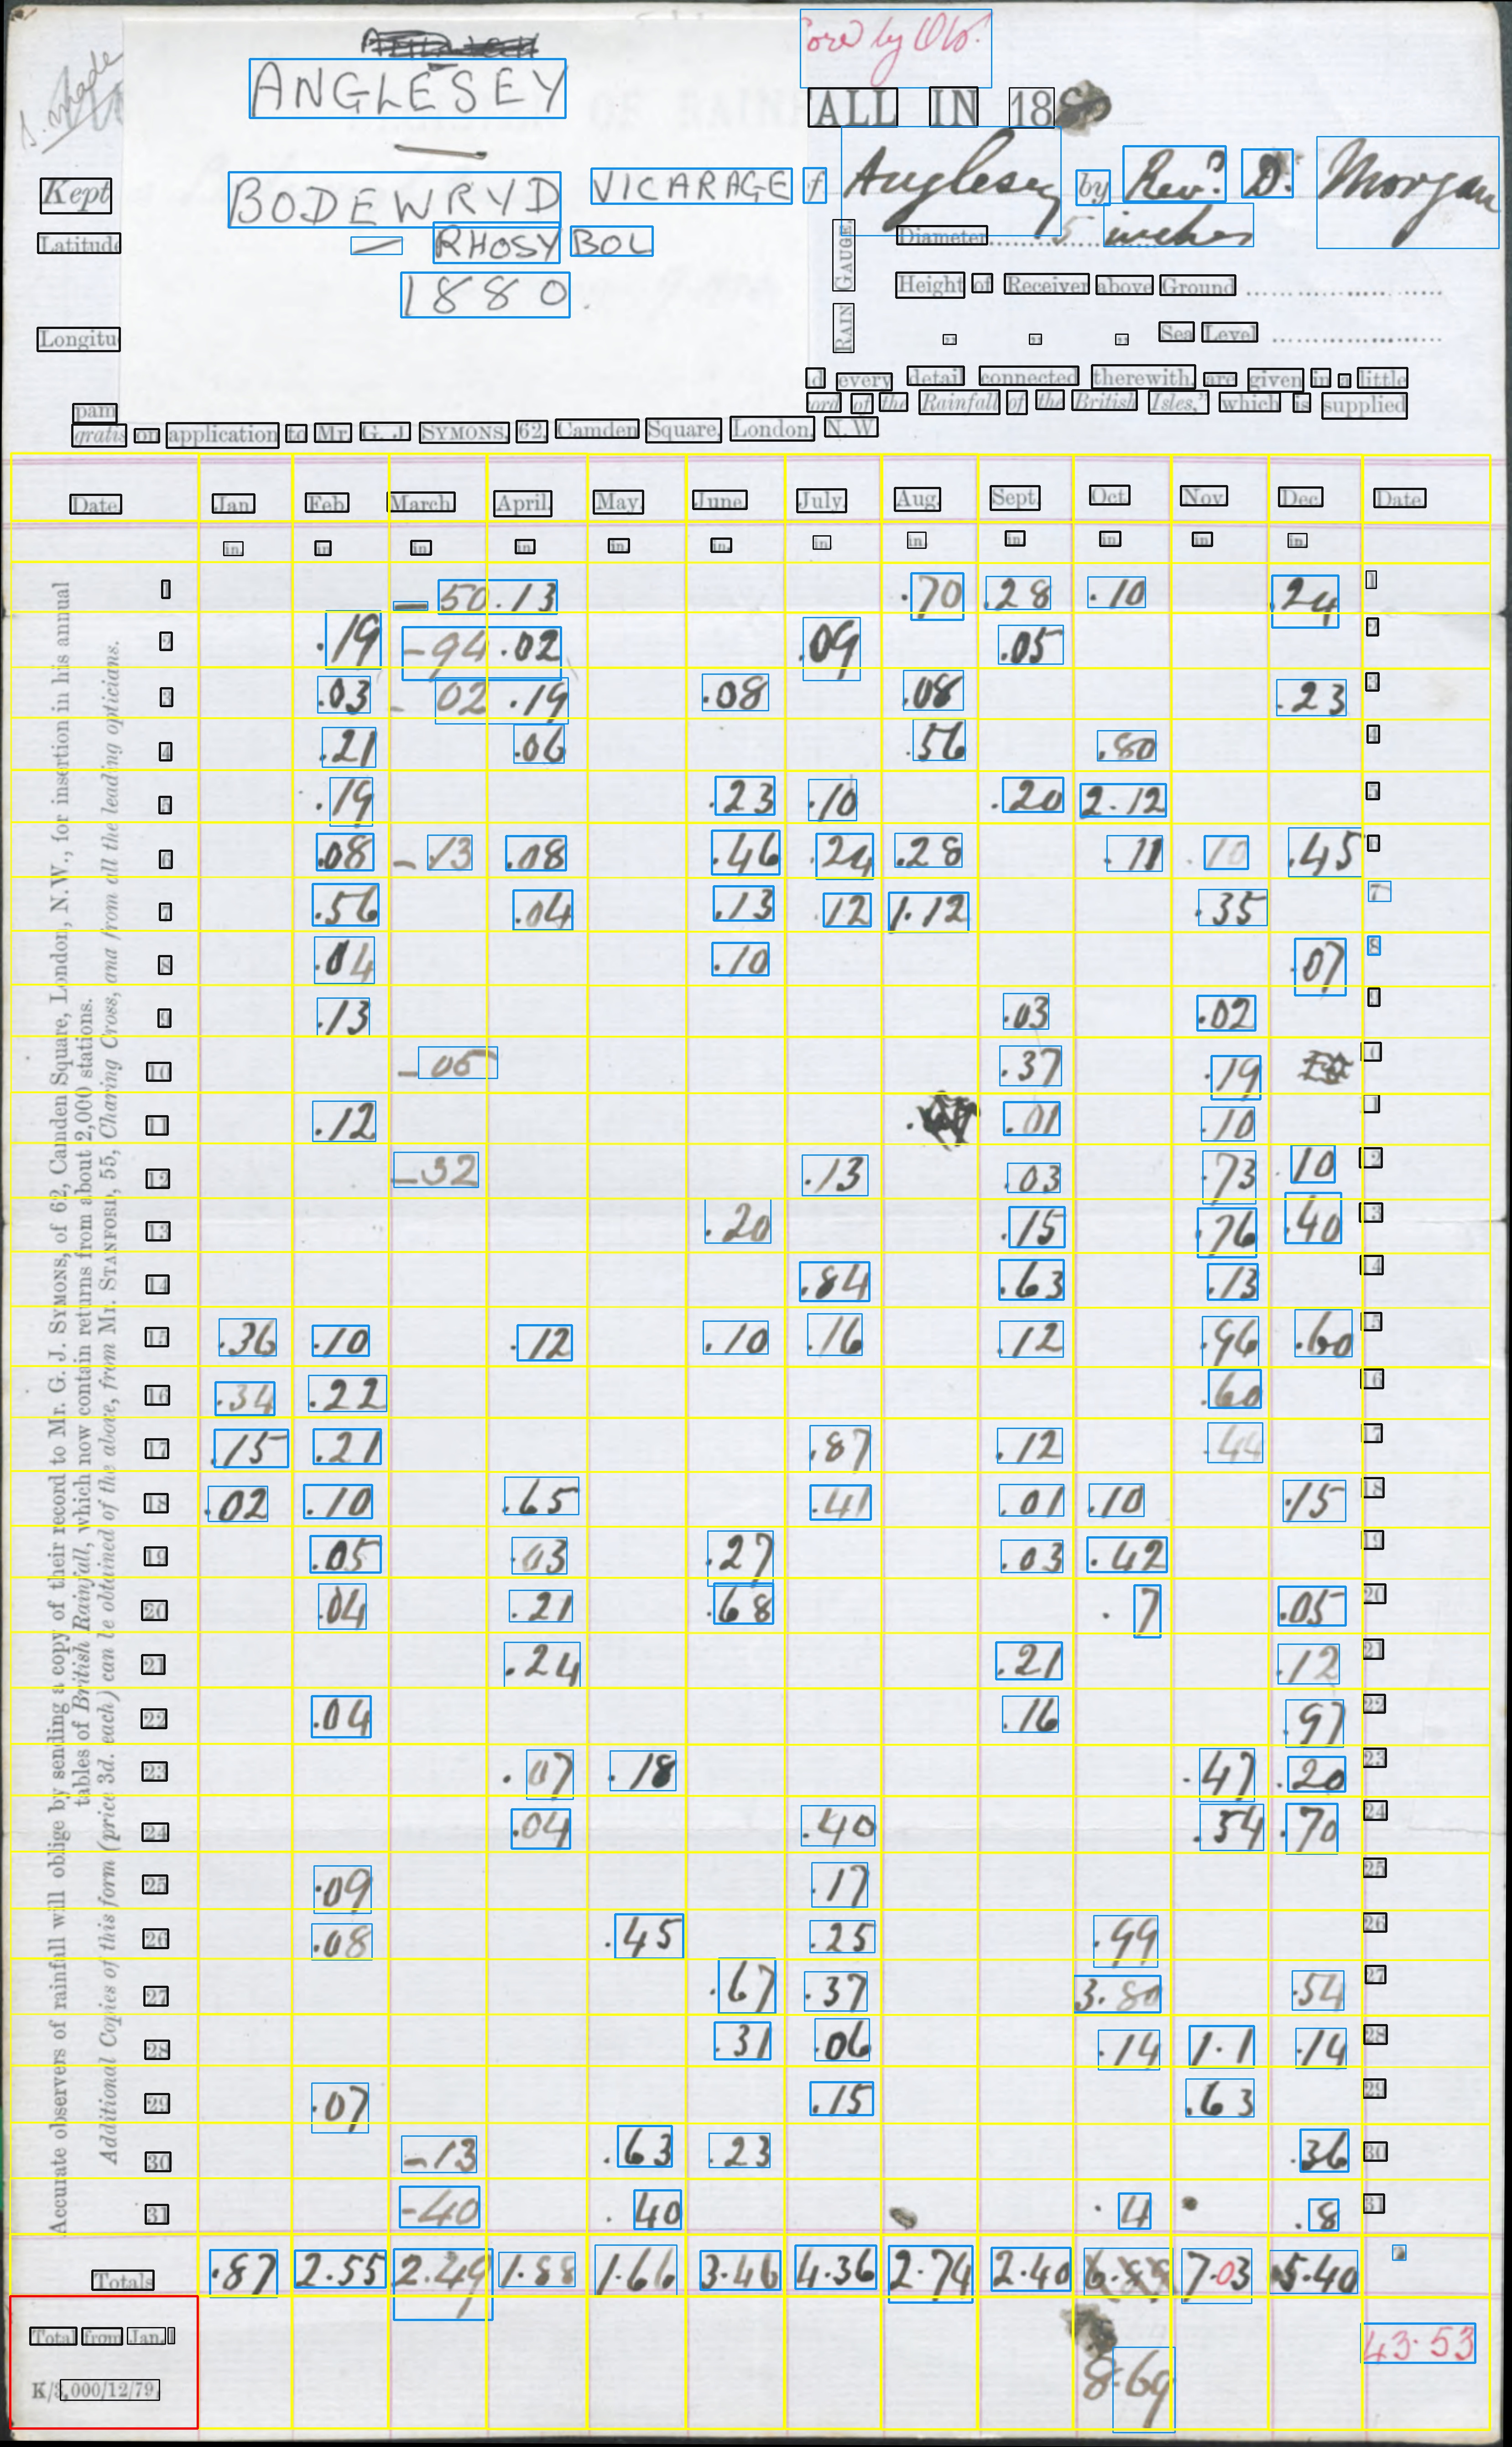 ored by Obs.
ANGLESEY
ALL IN 18
BODEWRYD VICARAGE
RHOSY BOL
1880.
Kept f Anglesey by Revd. D. Morgan
Latitude
Longitu
RAIN GAUGE.
Diameter 5 inches
Height of Receiver above Ground
" " " Sea Level
d every detail connected therewith, are given in a little
pam ord of the Rainfall of the British Isles," which is supplied
gratis on application to Mr. G. J. SYMONS, 62, Camden Square, London, N.W
Accurate observers of rainfall will oblige by sending a copy of their record to Mr. G. J. SYMONS, of 62, Camden Square, London, N.W., for insertion in his annual
tables of British Rainfall, which now contain returns from about 2,000 stations.
Additional Copies of this form (price 3d. each) can be obtained of the above, from Mr. STANFORD, 55, Charing Cross, and from all the leading opticians.
Date. Jan. Feb. March. April. May. June. July. Aug. Sept. Oct. Nov. Dec. Date.
in. in. in. in. in. in. in. in. in. in. in. in.
1 –50 .13 .70 .28 .10 .24 1
2 .19 –94 .02 .09 .05 2
3 .03 – 02 .19 .08 .08 .23 3
4 .21 .06 .56 .80 4
5 .19 .23 .10 .20 2.12 5
6 .08 – 13 .08 .46 .24 .28 .11 .10 .45 6
7 .56 .04 .13 .12 1.12 .35 7
8 .04 .10 .07 8
9 .13 .03 .02 9
10 – 05 .37 .19 0
11 .12 .01 .10 1
12 –32 .13 .03 .73 .10 2
13 .20 .15 .76 .40 3
14 .84 .63 .13 4
15 .36 .10 .12 .10 .16 .12 .96 .60 5
16 .34 .22 .60 16
17 .15 .21 .87 .12 .44 17
18 .02 .10 .65 .41 .01 .10 .15 18
19 .05 .03 .27 .03 .42 19
20 .04 .21 .68 . 7 .05 20
21 .24 .21 .12 21
22 .04 .16 .97 22
23 .07 .18 .47 .20 23
24 .04 .40 .54 .70 24
25 .09 .17 25
26 .08 .45 .25 .99 26
27 .67 .37 3.80 .54 27
28 .31 .06 .14 1.1 .14 28
29 .07 .15 .63 29
30 –13 .63 .23 .36 30
31 –40 . 40 . 4 .8 31
Totals .87 2.55 2.49 1.88 1.66 3.46 4.36 2.74 2.40 7.03 5.40
Total from Jan. 1 8.69 43.53
K/3,000/12/79.